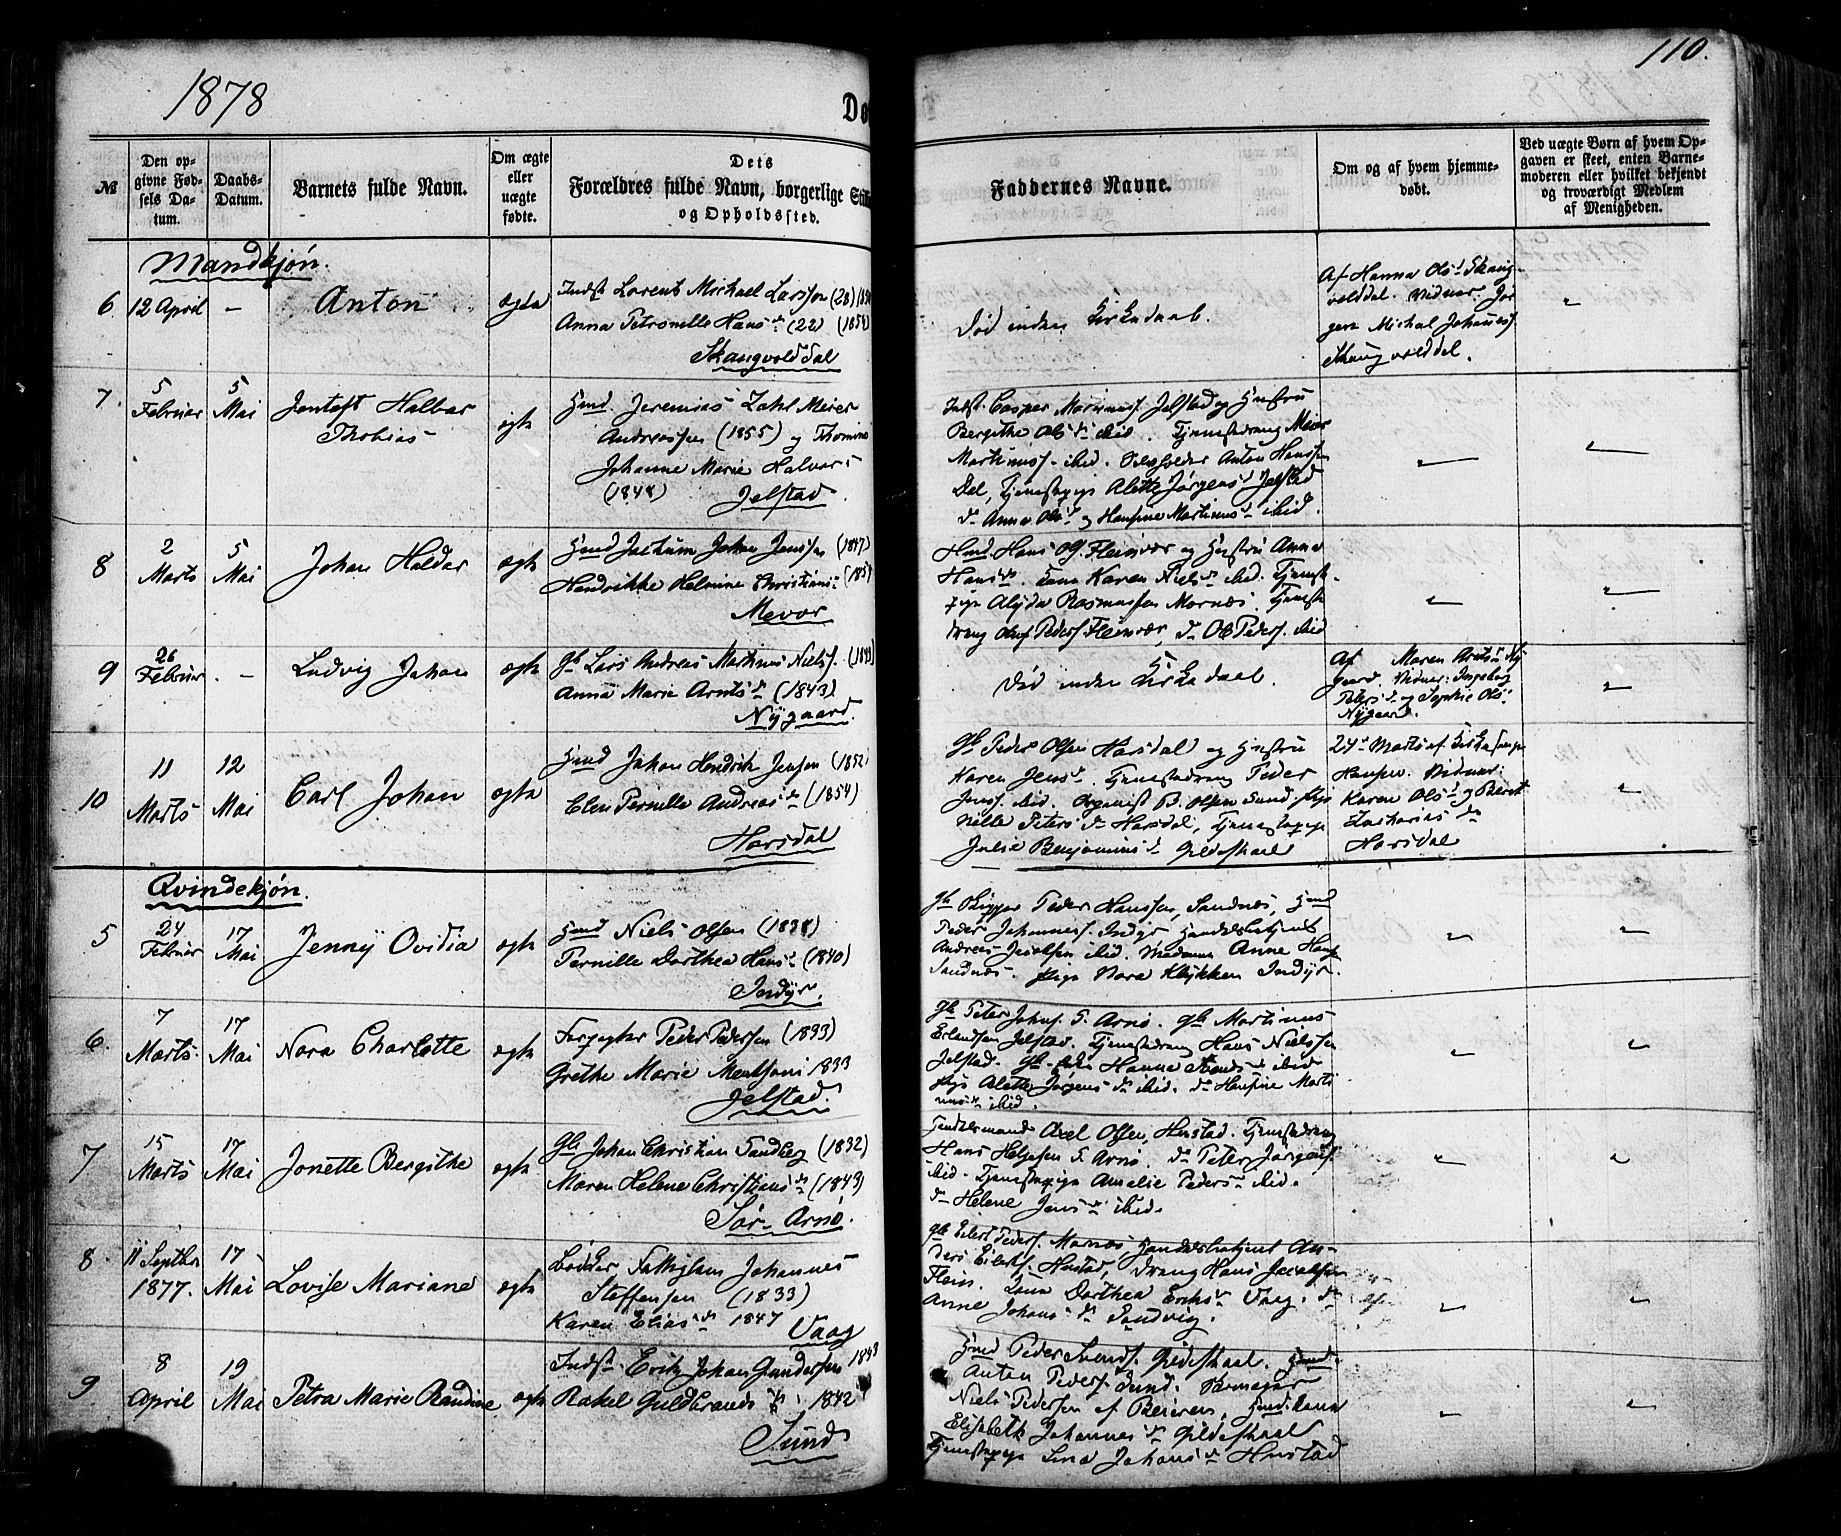 1878
110.
Dø
№
Den opgivne Fødsels Datum.
Daabs-Datum.
Barnets fulde Navn.
Om ægte eller uægte fødte.
Dets
Forældres fulde Navn, borgerlige
og Opholdssted.
Faddernes Navne.
Om og af hvem hjemmedøbt.
Ved uægte Børn af hvem Opgaven er skeet, enten Barnemoderen eller hvilket bekjendt og troværdigt Medlem af Menigheden.
Mandkjøn.
6. 12 April – Anton ægte
Indst Lorents Michael Larssen (28)
Anna Petronelle Hans d (22) (1854)
Skaugvolddal
Død inden Kirkedaab.
Af Hanna Ols d Skaug-
volddal. Vidner: Jør
gen Michal Johannes
Skaugvolddal.
7. 5 Februar 5 Mai
Jentoft Halvar
Thobias ægte
Hmd Jeremias Zahl Meier
Andreassen (1855) og Thomine
Johanne Marie Halvors
(1848) Jelstad
Indst. Casper Marinus. Jelstad og Hustru
Bergithe Ols d ibid. Tjenestedreng Meier
Martinuss. ibid. Anton Hanssen
Del, Tjenestepige Alette Jørgens d Jelstad
do Anna Ols d og Hansine Martinus d ibid.
8 2 Marts 5 Mai Johan Haldor ægte
Hmd Joakum Johan Jenssen (1847)
Hendrikke Helmine Christians
Mevær
Hmd. Hans Ol. Fleinvær og Hustru Anna
Hans d. Karen Niels d ibid. Tjenest-
pige Alida Rasmussen Mornæs. Tjeneste
dreng Oluf Peders. Fleinvær, do Ole Peders. ibid
9 26 Februar – Ludvig Johan ægte
Gb Lars Andreas Martinus Niels.
Anna Marie Arnts d (1843)
Nygaard.
Død inden Kirkedaab.
Af Maren Arnts d Ny
gaard. Vidner: Ingeborg
Peters d og Sophie Ols
Nygaard.
10 11 Marts 12 Mai Carl Johan ægte
Hmd Johan Hendrik Jensen (1852)
Elen Pernille Andreas d (1854)
Horsdal
Gb Peder Olsen Horsdal og Hustru
Karen Jens d. Tjenestedreng Peder
Jens. ibid. Organist B. Olsen Sund Pige
Nille Peters d Horsdal, Tjenestepige
Julie Benjamins d Gildeskaal
24 Marts af Kirkesanger
Hansen. Vidner:
Karen Ols d og Berit
Zacharias d
Horsdal
Qvindekjøn.
5 24 Februar 17 Mai Jenny Ovidia ægte
Hmd Niels Olsen
Pernille Dorthea Hans d (1840)
Indyr.
Gb Bigger Peder Hanssen, Sandnæs, Hmd
Peder Johannes. Indyr Handelsbetjent
Andreas Jacobsen ibid. Madame Anne Hans
Sandnæs. Pige Nora Klykken Indyr.
6. 7 Marts. 17 Mai Nora Charlotte ægte
Forpagter Peder Pedersen (1833)
Grethe Marie Mentsoni 1833
Jelstad.
Gb Peter Johns. S. Arnø. Gb Martinus
Erlandsen Jelstad. Tjenestedreng Hans Nielssen
Jelstad. Gb Hanna ibid
Pige Alette Jørgens d ibid. do Hansine Marti
nus d ibid.
7 15 Marts 17 Mai Jonette Bergithe ægte
Gb Johan Christian Sandberg (1832)
Maren Helene Christians d (1843)
Sør-Arnø.
Handelsmand Axel Olsen, Hustad. Tjenestedreng
Hans Helgesen S. Arnø. do Peter Jørgens
ibid. Tjenestepige Amalie Peders d ibid.
do Helene Jens d ibid.
8. 11 Septbr 1877. 17 Mai Lovise Mariane ægte
Bødker Fattiglem Johannes
Steffensen (1833)
Karen Elias d 1847
Vaag
Gb Eilert Peders. Mornæs Handelsbetjent An-
ders Eilerts. Hustad, Dreng Hans Jacobsen
Flein. Lena Dorthea Eriks d Vaag. do
Anne Johans d Sandvig.
9 8 April 19 Mai Petra Marie Randine ægte
Indst. Erik Johan Gundersen 1843
Rakel Guldbrands d 1842
Sund
Hmd Peder Svends. Gildeskaal. Hmd.
Anton Peders. Sund.
Niels Pedersen af Beieren, Hmd.
Elisabeth Johannes d Gildeskaal
Tjenestepige Lina Johans d Hustad